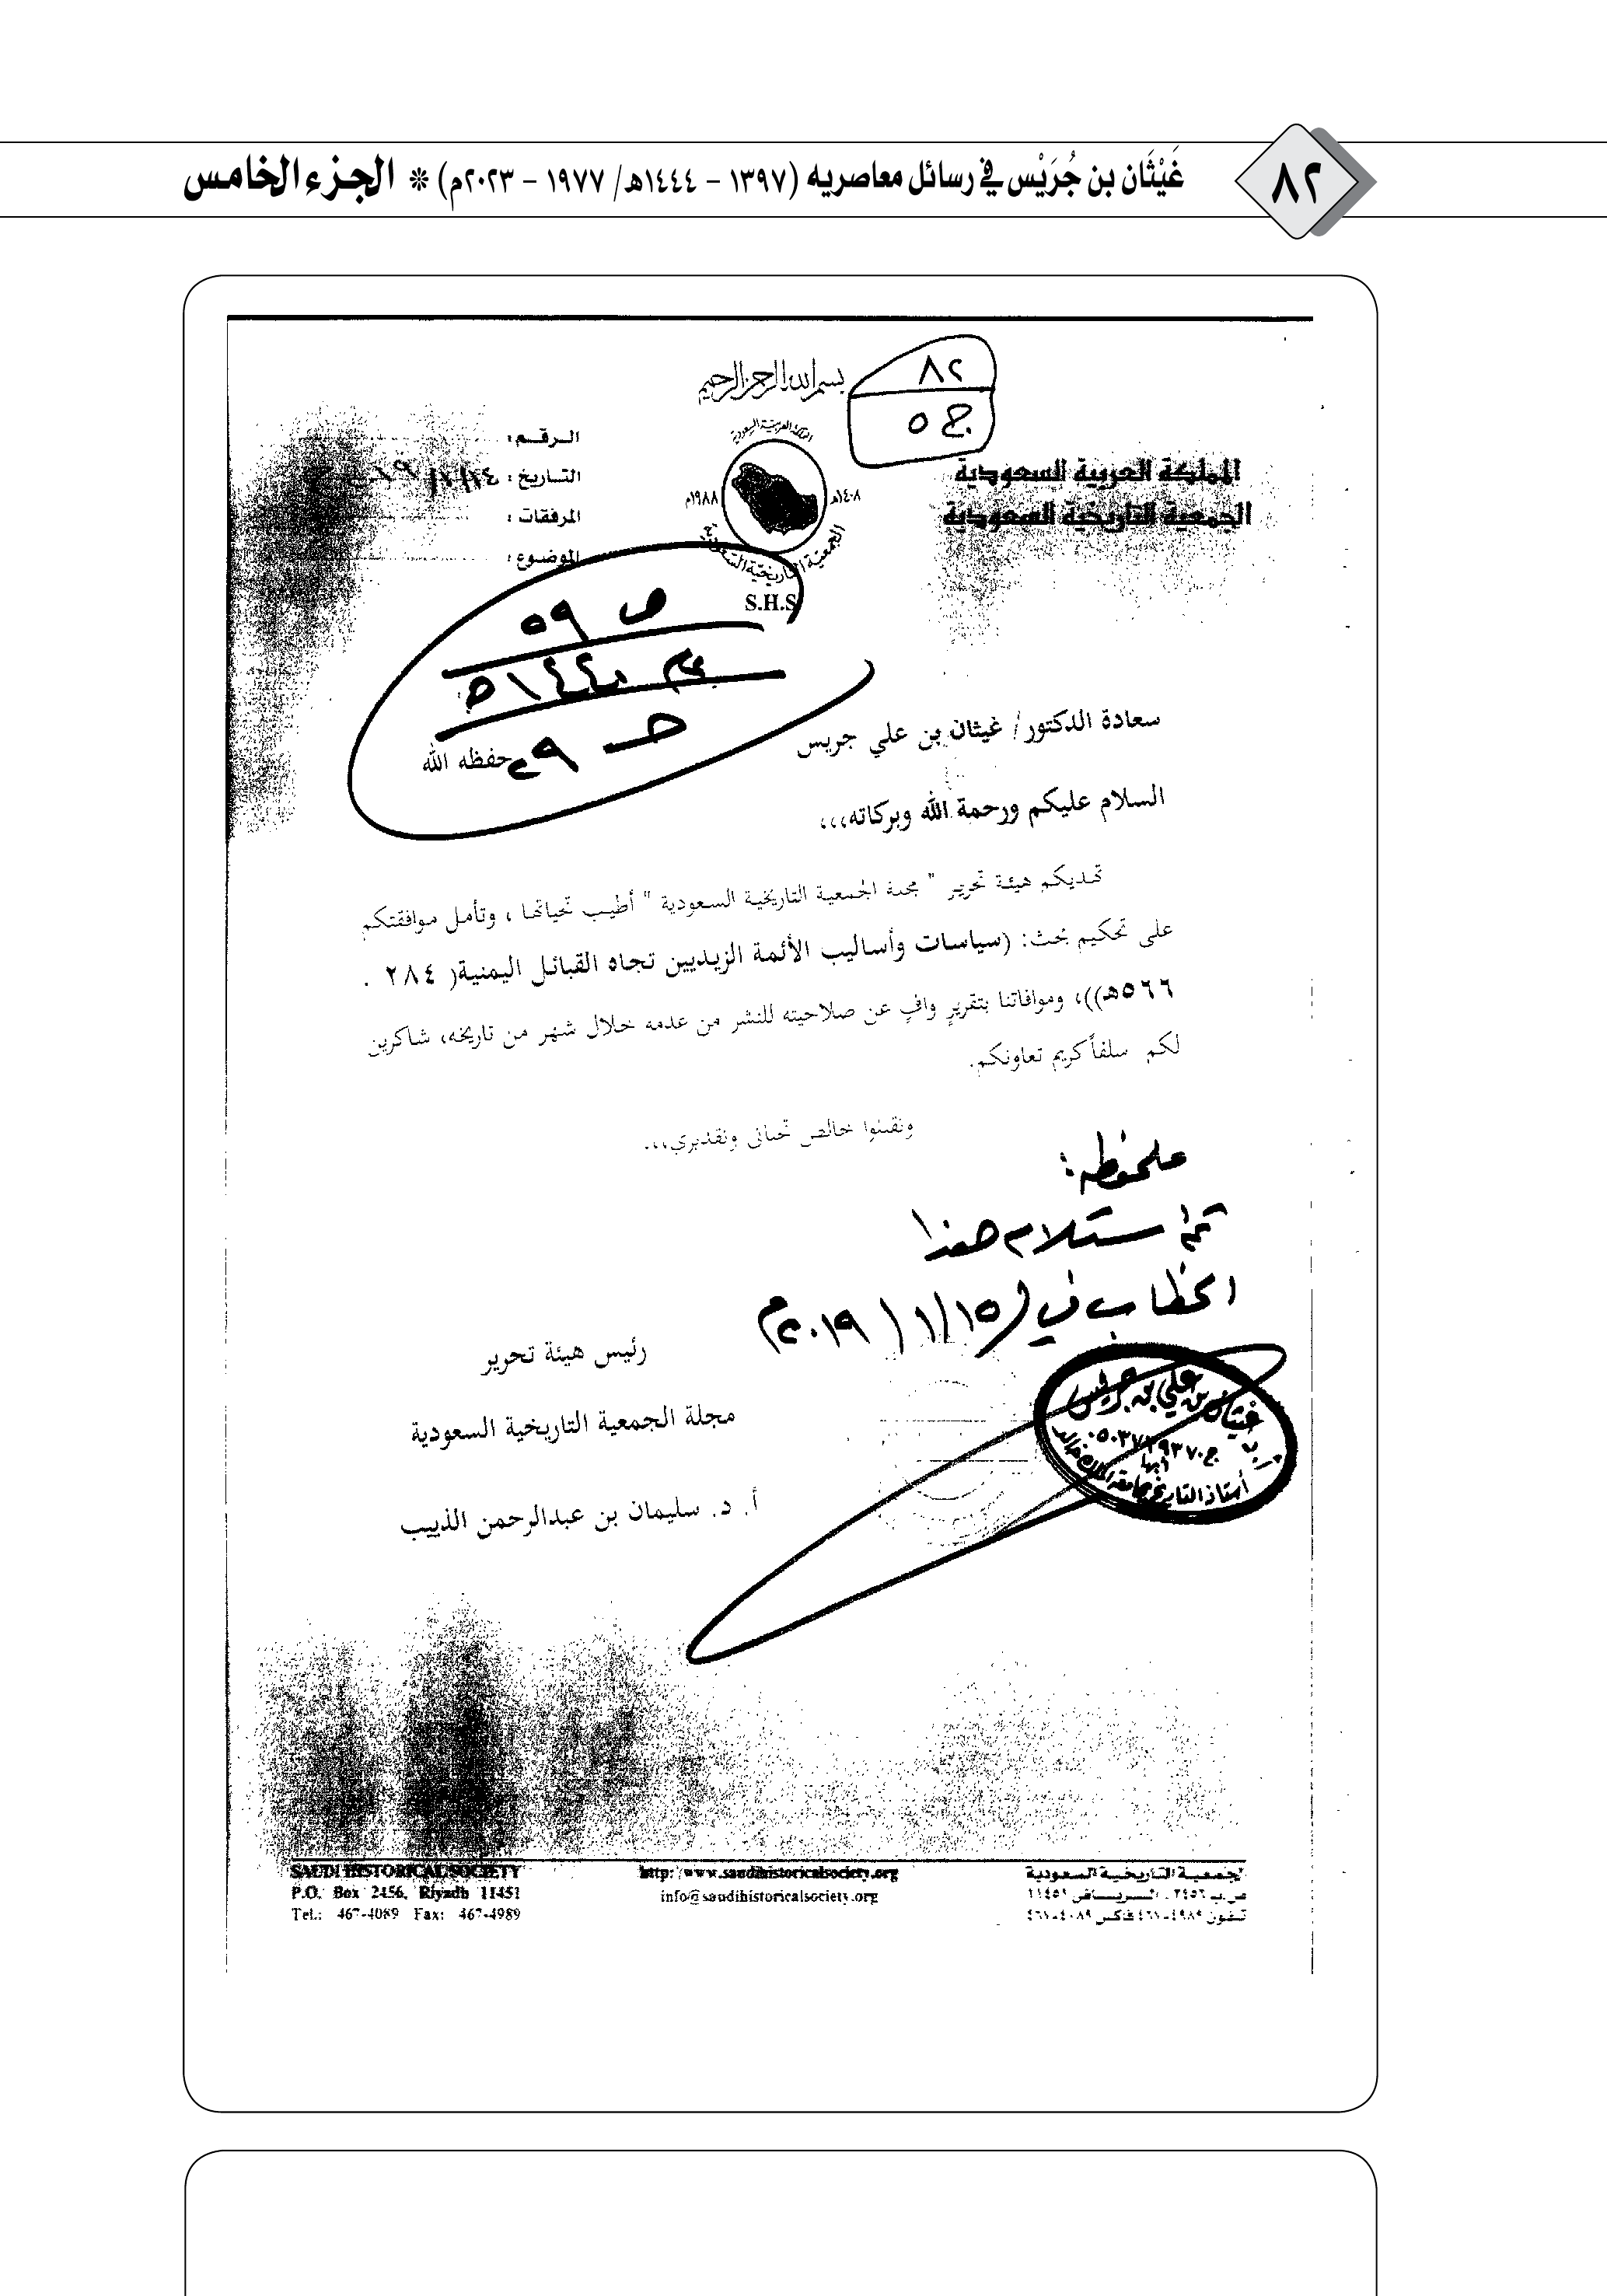 ٨٢
غَيْثَان بن جُرَيْس في رسائل معاصريه (١٣٩٧ – ١٤٤٤هـ/ ١٩٧٧ – ٢٠٢٣م) * الجزء الخامس
بسم الله الرحمن الرحيم
٨٢
ج ٥
المملكة العربية السعودية
الجمعية التاريخية السعودية
المملكة العربية السعودية
١٤٠٨هـ
١٩٨٨م
الجمعية التاريخية السعودية
S.H.S
الرقم :
التاريخ :
المرفقات :
الموضوع :
ص ٥٩
عام ١٤٤٠هـ
سعادة الدكتور/ غيثان بن علي جريس
حفظه الله
السلام عليكم ورحمة الله وبركاته،،،
تهديكم هيئة تحرير " مجلة الجمعية التاريخية السعودية " أطيب تحياتها ، وتأمل موافقتكم
على تحكيم بحث: (سياسات وأساليب الأئمة الزيديين تجاه القبائل اليمنية( ٢٨٤ .
٥٦٦هـ))، وموافاتنا بتقريرٍ وافٍ عن صلاحيته للنشر من عدمه خلال شهر من تاريخه، شاكرين
لكم سلفاً كريم تعاونكم.
وتقبلوا خالص تحياتي وتقديري،،،
ملحوظه :
تم استلام هذا
الخطاب في (١٥/١/٢٠١٩م
رئيس هيئة تحرير
مجلة الجمعية التاريخية السعودية
أ. د. سليمان بن عبدالرحمن الذييب
غيثان بن علي بن جريس
أبها
أستاذ التاريخ بجامعة الملك خالد
SAUDI HISTORICAL SOCIETY
P.O. Box 2456, Riyadh 11451
Tel.: 467-4089 Fax: 467-4989
http://www.saudihistoricalsociety.org
info@saudihistoricalsociety.org
الجمعية التاريخية السعودية
ص.ب ٢٤٥٦ . الرياض ١١٤٥١